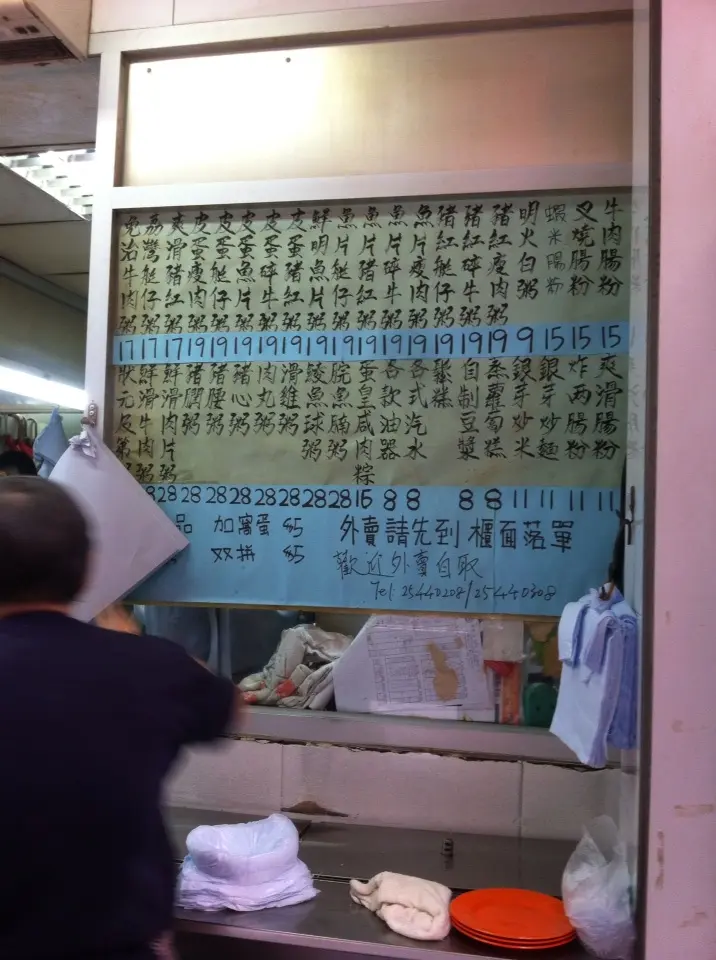 牛肉腸粉 15
叉燒腸粉 15
蝦米腸粉 15
明火白粥 9
豬紅瘦肉粥 19
豬紅碎牛粥 19
豬紅艇仔粥 19
魚片瘦肉粥 19
魚片碎牛粥 19
魚片豬紅粥 19
魚片艇仔粥 19
鮮明魚片粥 19
皮蛋豬紅粥 19
皮蛋碎牛粥 19
皮蛋魚片粥 19
皮蛋艇仔粥 19
皮蛋瘦肉粥 19
爽滑豬紅粥 17
荔灣艇仔粥 17
免治牛肉粥 17
爽滑腸粉 11
炸兩腸粉 11
銀芽炒麵 11
銀芽炒米 11
蒸蘿蔔糕 8
自制豆漿 8
各式汽水 8
各款油器 8
蛋皇咸肉粽 15
脘魚腩粥 28
鯪魚球粥 28
滑雞粥 28
肉丸粥 28
豬心粥 28
豬腰粥 28
豬膶粥 28
鮮滑肉片粥 28
鮮滑牛肉粥 8
狀元及第粥
品 加窩蛋 $5
双拼 $5
外賣請先到櫃面落單
歡迎外賣自取
Tel: 25440208/25440308